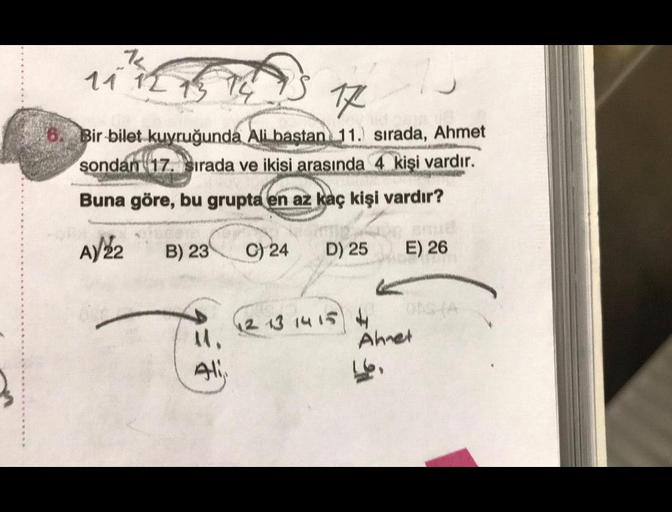 11 12 13 14 15
17
6. Bir bilet kuyruğunda Ali baştan 11. sırada, Ahmet
sondan 17. sırada ve ikisi arasında 4 kişi vardır.
Buna göre, bu grupta en az kaç kişi vardır?
A) 22 B) 23 C) 24 D) 25 E) 26
12 13 14 15
11. Ahmet
Ali 16.